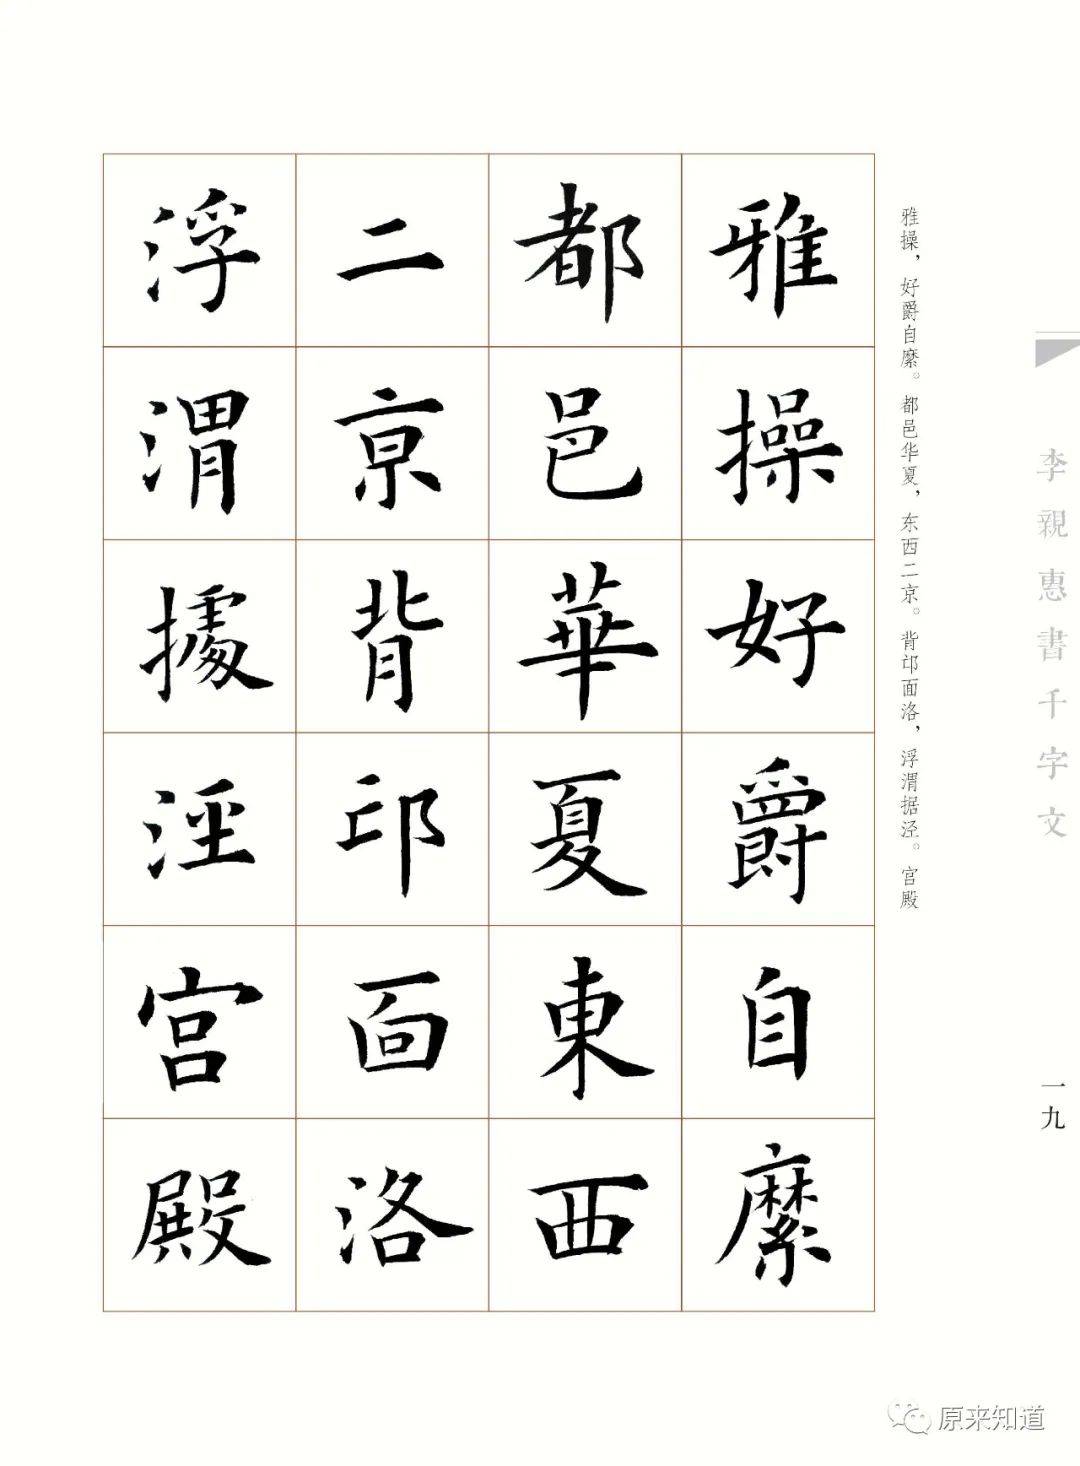 雅操好爵自縻
都邑華夏東西
二京背邙面洛
浮渭據涇宫殿
雅操，好爵自縻。都邑华夏，东西二京。背邙面洛，浮渭据泾。宫殿
李親惠書千字文
一九
原来知道